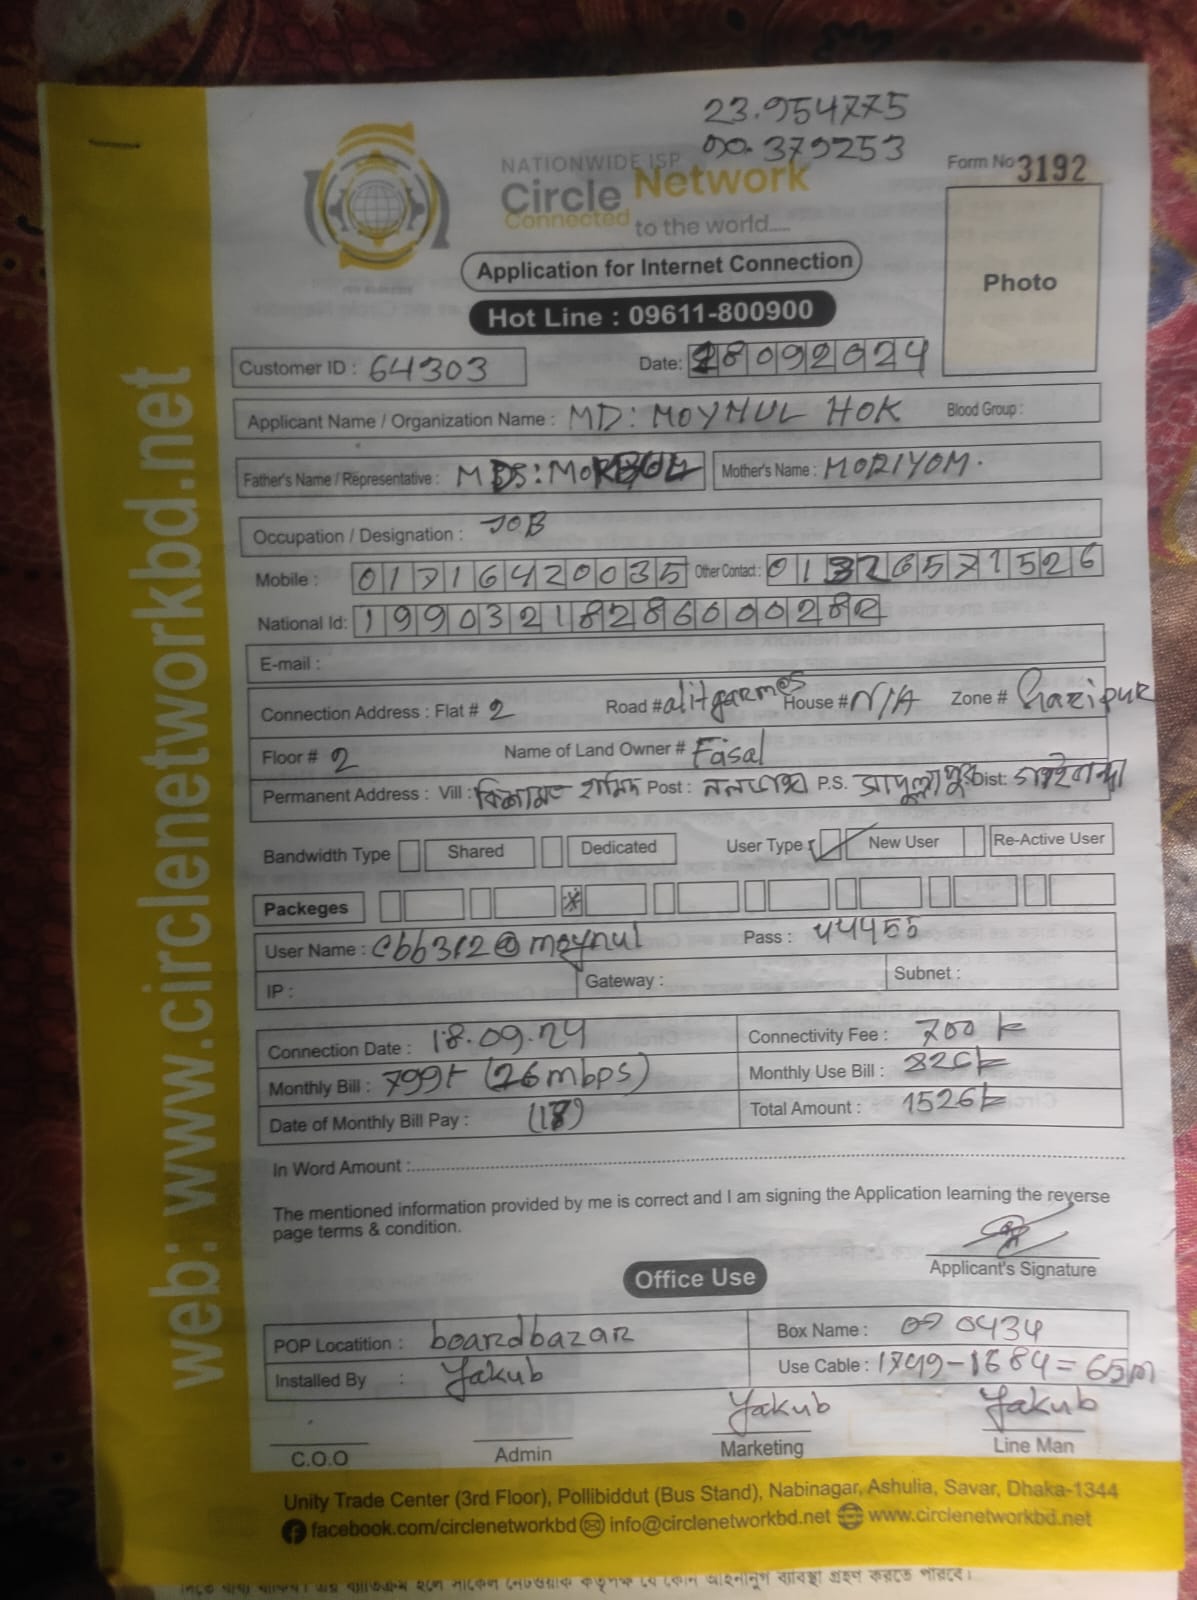 23.954775
90.379253
NATIONWIDE ISP
Form No 3192
Circle Network
Connected to the world.....
Application for Internet Connection
Photo
Hot Line : 09611-800900
Customer ID : 64303 Date: 18092024
Applicant Name / Organization Name : MD: MOYNUL HOK Blood Group :
Father's Name / Representative : Mother's Name : MORIYOM.
Occupation / Designation : JOB
Mobile : 01716420035 Other Contact : 01326571526
National Id: 19903218286000282
E-mail :
Connection Address : Flat # 2 Road # alitgarmes House # N/A Zone # Gazipur
Floor # 2 Name of Land Owner # Faisal
Permanent Address : Vill : কিশামত হামিদ Post : নলডাঙ্গা P.S. সাদুল্লাপুর Dist: গাইবান্ধা
Bandwidth Type Shared Dedicated User Type New User Re-Active User
Packeges
User Name : cbb312@moynul Pass : 44455
IP : Gateway : Subnet :
Connection Date : 18.09.24 Connectivity Fee : 700 tk
Monthly Bill : 799t (26mbps) Monthly Use Bill : 826tk
Date of Monthly Bill Pay : (18) Total Amount : 1526tk
In Word Amount :
The mentioned information provided by me is correct and I am signing the Application learning the reverse
page terms & condition.
Applicant's Signature
Office Use
POP Locatition : boardbazar Box Name : 070434
Installed By : Yakub Use Cable : 1749-1684=65m
Yakub Yakub
C.O.O Admin Marketing Line Man
Unity Trade Center (3rd Floor), Pollibiddut (Bus Stand), Nabinagar, Ashulia, Savar, Dhaka-1344
facebook.com/circlenetworkbd info@circlenetworkbd.net www.circlenetworkbd.net
web: www.circlenetworkbd.net